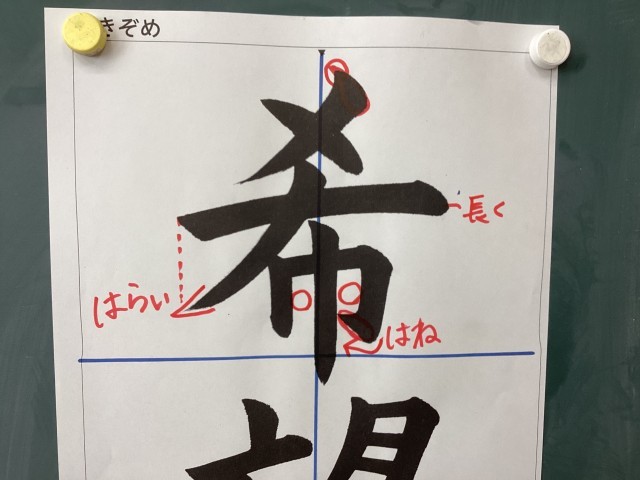 きぞめ
希
長く
はらい
はね